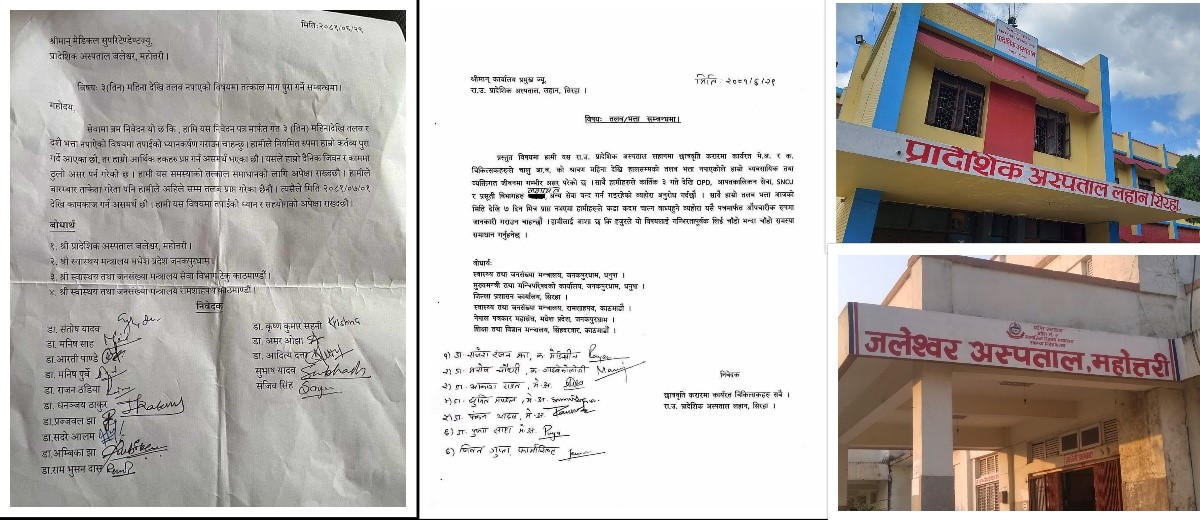 मिति:२०८१/०६/२९
श्रीमान मेडिकल सुपरिटेण्डेण्टज्यु,
प्रादेशिक अस्पताल जलेश्वर, महोत्तरी।
विषयः ३(तिन) महिना देखि तलव नपाएको विषयमा तत्काल माग पुरा गर्ने सम्बन्धमा।
महोदय,
सेवामा नम्र निवेदन यो छ कि, हामि यस निवेदन पत्र मार्फत गत ३ (तिन) महिनादेखि तलव र
दशै भत्ता नपाएको विषयमा तपाईको ध्यानकर्षण गराउन चाहन्छु। हामीले नियमित रुपमा हाम्रो कर्तव्य पुरा
गर्दै आएका छौ, तर हाम्रो आर्थिक हकहरु प्राप्त गर्न असमर्थ भएका छौ। यसले हाम्रो दैनिक जिवन र काममा
ठूलो असर पर्न गरेको छ। हामी यस समस्याको तत्काल समाधानको लागि अपेक्षा राख्दछौ। हामीले
बारम्बार ताकेता गरेता पनि हामीले अहिले सम्म तलव प्राप्त गरेका छैनौं। त्यसैले मिति २०८१/०७/०१
देखि कामकाज गर्न असमर्थ छौ। हामी यस विषयमा तपाईको ध्यान र सहयोगको अपेक्षा राख्दछौ।
बोधार्थ
१. श्री प्रादेशिक अस्पताल जलेश्वर, महोत्तरी।
२. श्री स्वास्थय मन्त्रालय मधेश प्रदेश जनकपुरधाम।
३. श्री स्वास्थय तथा जनसंख्या मन्त्रालय सेवा विभाग टेकु काठमाण्डौं।
४. श्री स्वास्थय तथा जनसंख्या मन्त्रालय रामशाहपथ काठमाण्डौं।
निवेदक
डा. संतोष यादव
डा. मनिष साह
डा.आरती पाण्डे
डा. मनिष पुर्वे
डा. राजन ठडिया
डा. धनञ्जय ठाकुर
डा.प्रज्जवल झा
डा.सदरे आलम
डा.अम्बिका झा
डा.राम भुसन दास
डा. कृष्ण कुमार सहनी Krishna
डा. अमर ओझा
डा. आदित्य दत्त
सुभाष यादव Subhash
सजिव सिंह
श्रीमान् कार्यालय प्रमुख ज्यू, मिति: २०८१/६/२९
रा.उ. प्रादेशिक अस्पताल, लहान, सिरहा ।
विषयः तलव/भत्ता सम्बन्धमा।
प्रस्तुत विषयमा हामी यस रा.उ. प्रादेशिक अस्पताल लहानमा छात्रवृति करारमा कार्यरत मे.अ. र क.
चिकित्सकहरुले चालु आ.व. को श्रावण महिना देखि हालसम्मको तलव भत्ता नपाएकोले हाम्रो व्यवसायिक तथा
व्यक्तिगत जीवनमा गम्भीर असर परेको छ । साथै हामीहरुले कार्तिक ३ गते देखि OPD, आपतकालिन सेवा, SNCU
र प्रसूती विभागहरु अन्य सेवा बन्द गर्न गइरहेको व्यहोरा अनुरोध गर्दछौं । साथै हाम्रो तलव भत्ता आजको
मिति देखि ७ दिन भित्र प्राप्त नभएमा हामीहरुले कडा कदम चाल्न बाध्यहुने व्यहोरा यसै पत्रमार्फत औपचारीक रुपमा
जानकारी गराउन चाहन्छौं । हामीलाई आशा छ कि हजुरले यो विषयलाई गम्भिरतापूर्वक लिई चाँडो भन्दा चाँडो समस्या
समाधान गर्नुहुनेछ ।
बोधार्थः
स्वास्थ्य तथा जनसंख्या मन्त्रालय, जनकपुरधाम, धनुषा ।
मुख्यमन्त्री तथा मन्त्रिपरिषदको कार्यालय, जनकपुरधाम, धनुषा ।
जिल्ला प्रशासन कार्यालय, सिरहा ।
स्वास्थ्य तथा जनसंख्या मन्त्रालय, रामशाहपथ, काठमाडौं ।
नेपाल पत्रकार महासंघ, मधेश प्रदेश, जनकपुरधाम ।
शिक्षा तथा विज्ञान मन्त्रालय, सिंहदरवार, काठमाडौं ।
१) डा. राजेश रंजन झा, क. मेडिसीन
२) डा. मनोज चौधरी, क. गाइनेकोलोजी Manoj
३) डा. राउत, मे.अ.
४) डा. मण्डल, मे.अ.
५) डा. पंकज यादव, मे.अ.
६) डा. पुजा साह मे.अ. Puja
६) जिवन गुप्ता, फार्मासिस्ट
निवेदक
छात्रवृति करारमा कार्यरत चिकित्सकहरु सबै ।
रा.उ. प्रादेशिक अस्पताल लहान, सिरहा ।
प्रादेशिक अस्पताल
प्रादेशिक अस्पताल लहान सिरहा.
जलेश्वर अस्पताल, महोत्तरी